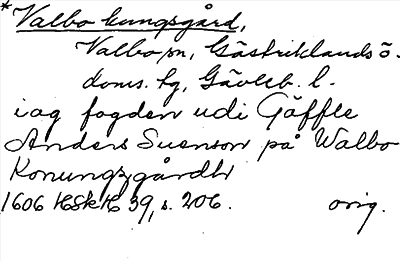 *Valbo kungsgård,
Valbo sn, Gästriklands ö.
doms. tg, Gävleb. l.
iag fogden udi Gäffle
Anders Suenson på Walbo
Konungzgårdh
1606 HSkH 39, s. 206. orig.